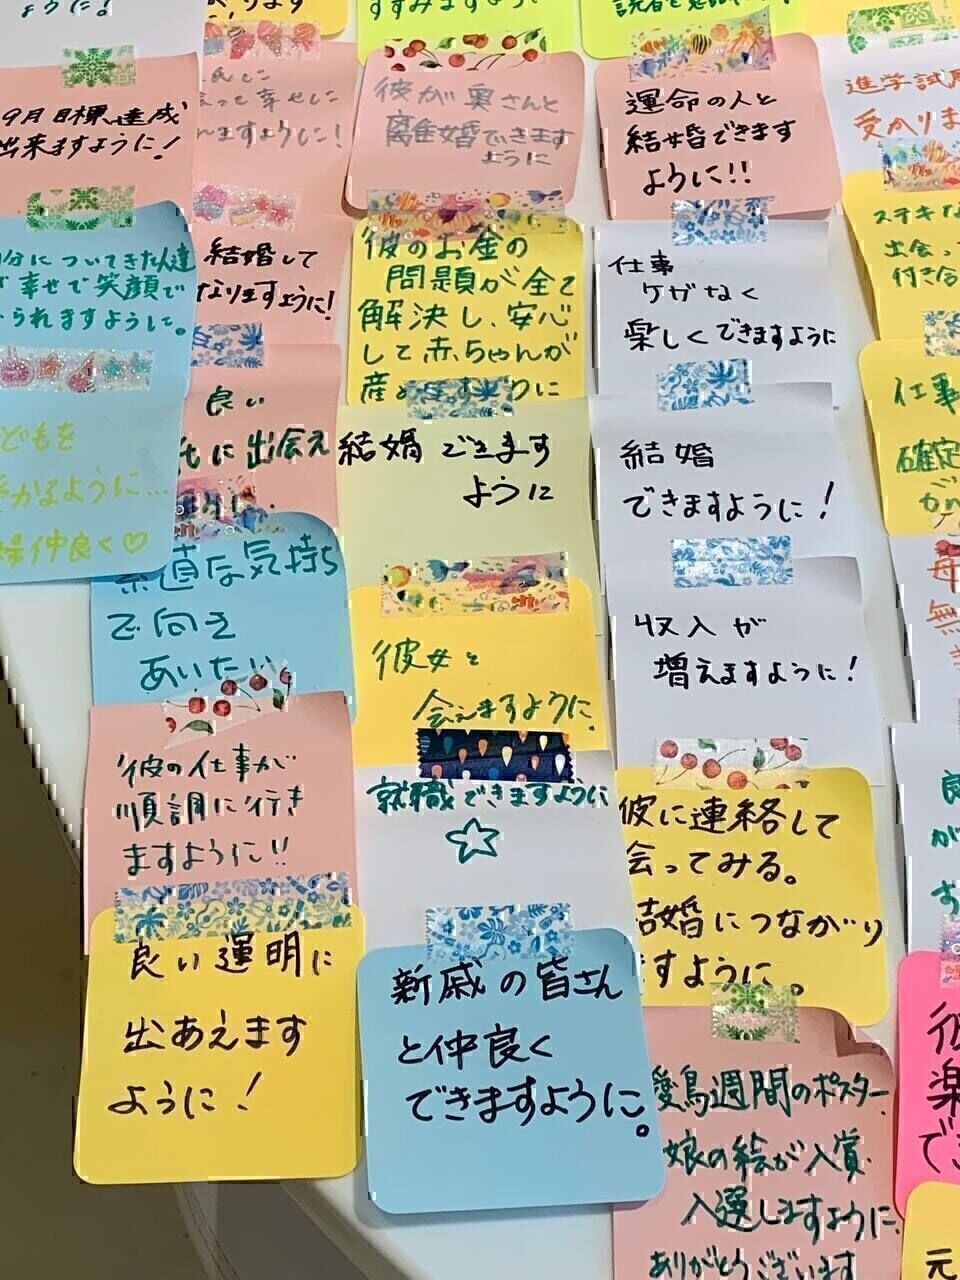 ように!
すすみますように
9月目標達成
出来ますように!
幸せに
ますように!
彼が奥さんと
離婚できます
ように
運命の人と
結婚できます
ように!!
進学試
受かりま
についてきた人達
幸せで笑顔で
られますように。
結婚して
なりますように!
彼のお金の
問題が全て
解決し、安心
して赤ちゃんが
産
仕事
ケガなく
楽しくできますように
ステキな
出会っ
付き合
どもを
かるように…
仲良く♡
良い
に出会え
結婚できます
ように
結婚
できますように!
仕事
確定
が
素直な気持ち
で向き
あいたい
彼女と
会えますように
収入が
増えますように!
母
無
彼の仕事が
順調に行き
ますように!!
就職できますように
☆
彼に連絡して
会ってみる。
結婚につながり
ますように。
良い運明に
出あえます
ように!
新戚の皆さん
と仲良く
できますように。
愛鳥週間のポスター
娘の絵が入賞
入選しますように
ありがとうございます
彼
楽
でき
元